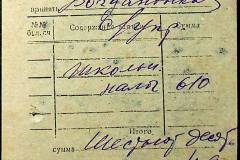 принять Богдановка
№№ бил. сч. Содержание сумма
школьн.
налог 610
Итого
сумма Шестьсот десять